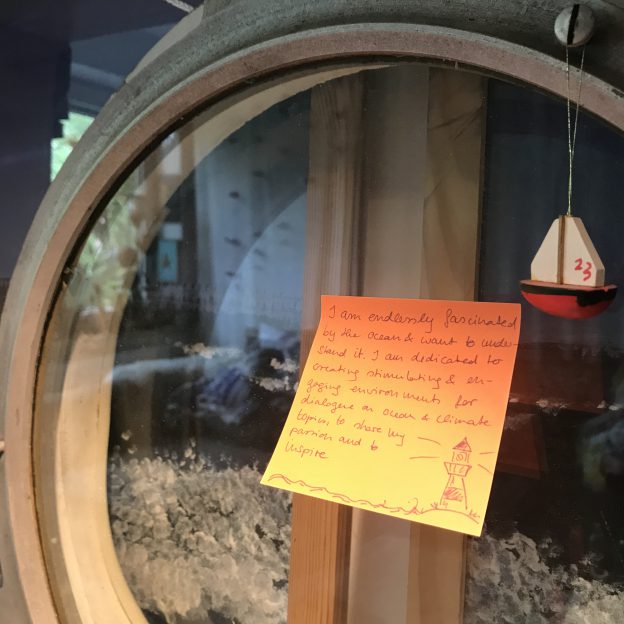 23
I am endlessly fascinated
by the ocean & want to under-
stand it. I am dedicated to
creating stimulating & en-
gaging environments for
dialogue on ocean & climate
topics, to share my
passion and to
inspire